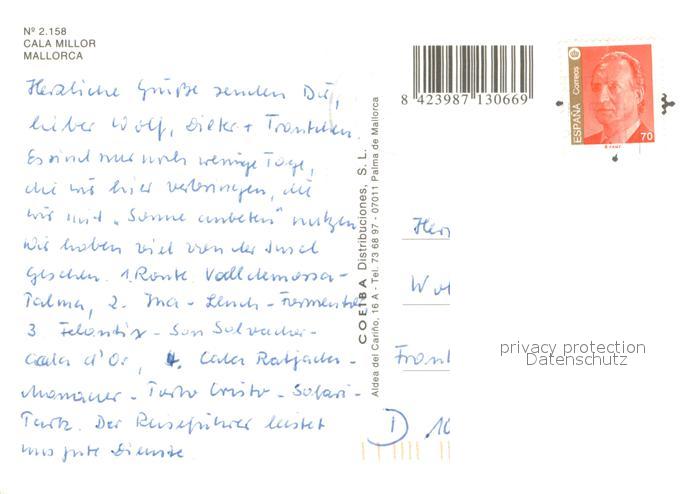 Nº 2.158
CALA MILLOR
MALLORCA
Herzliche Grüße senden Dir,
lieber Wolf, Dieter + Trautchen.
Es sind nur noch wenige Tage,
die wir hier verbringen, die
wir mit „Sonne anbeten" nutzen.
Wir haben viel von der Insel
gesehen. 1. Route Valldemossa-
Palma, 2. Inca - Lluch - Formentor
3. Felanitx - San Salvador -
Cala d'Or, 4. Cala Ratjada -
Manacor - Porto Cristo - Safari-
Park. Der Reiseführer leistet
uns gute Dienste.
COEIBA Distribuciones, S. L.
Aldea del Cariño, 16 A - Tel. 73 68 97 - 07011 Palma de Mallorca
8 423987 130669
ESPAÑA Correos
70
Frank
D 10
privacy protection
Datenschutz